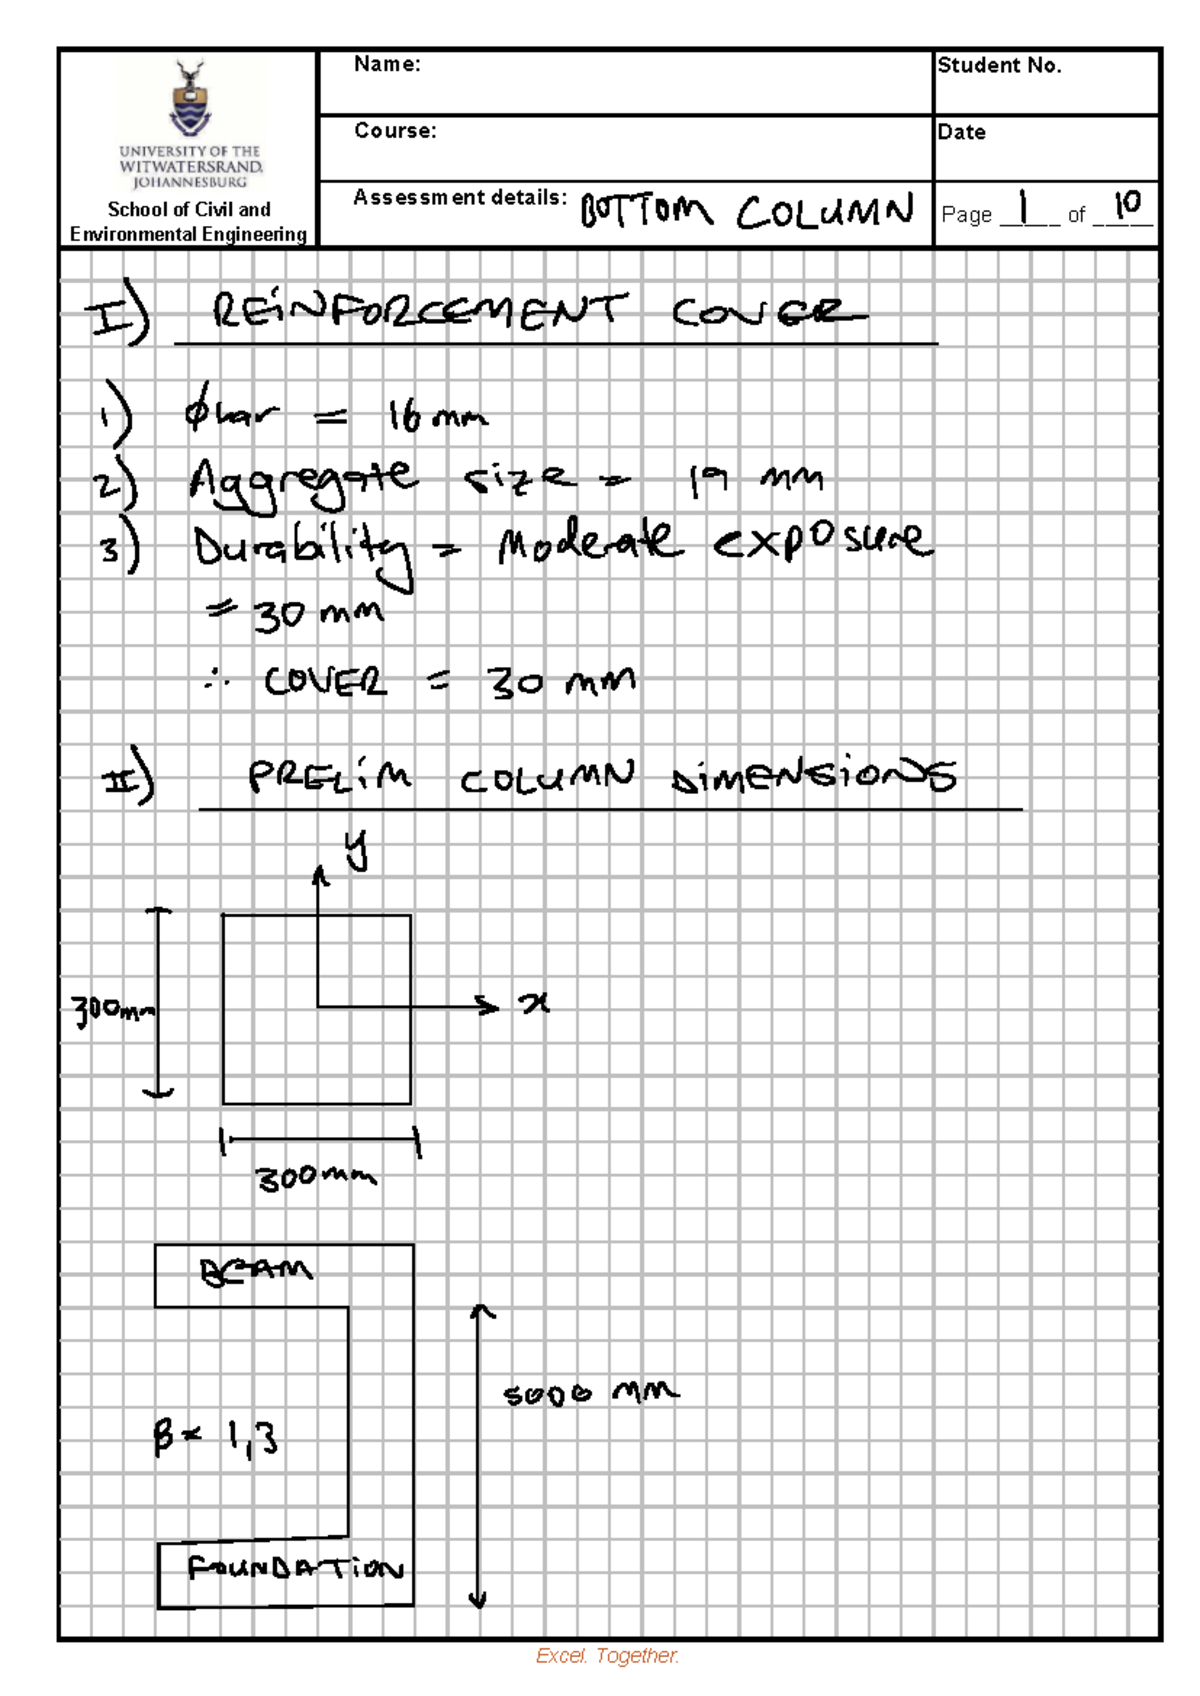 UNIVERSITY OF THE
WITWATERSRAND,
JOHANNESBURG
School of Civil and
Environmental Engineering
Name:
Student No.
Course:
Date
Assessment details: BOTTOM COLUMN
Page 1 of 10
I) REINFORCEMENT COVER
1) ϕbar = 16 mm
2) Aggregate size = 19 mm
3) Durability = Moderate exposure
= 30 mm
∴ COVER = 30 mm
II) PRELIM COLUMN DIMENSIONS
y
300mm
x
300mm
BEAM
5000 mm
β = 1,3
FOUNDATION
Excel. Together.